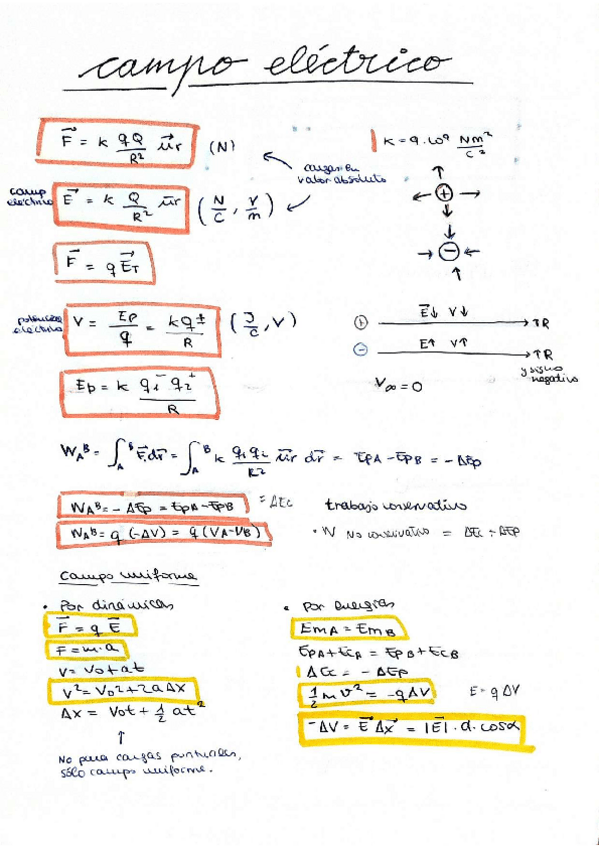 campo eléctrico
F⃗ = k qQ/R² u⃗r (N)
K = 9·10⁹ Nm²/C²
cargas en valor absoluto
campo eléctrico E⃗ = k Q/R² u⃗r (N/C, V/m)
F⃗ = q E⃗T
potencial eléctrico V = Ep/q = kq±/R (J/C, V)
+ E⃗↓ V↓ ↑R
− E↑ V↑ ↑R
y signo negativo
V∞ = 0
Ep = k q₁⁻ q₂⁺/R
WAᴮ = ∫AᴮF⃗.dr⃗ = ∫Aᴮ k q₁q₂/R² u⃗r dr⃗ = EpA − EpB = −ΔEp
WAᴮ = −ΔEp = EpA−EpB = ΔEc trabajo conservativo
WAᴮ = q (−ΔV) = q (VA−VB) · W no conservativo = ΔEc + ΔEp
campo uniforme
• Por dinámicas
F⃗ = q E⃗
F = m·a
V = Vo + at
V² = Vo² + 2aΔx
Δx = Vot + ½ at²
No para cargas puntuales,
sólo campo uniforme.
• Por energías
EmA = EmB
EpA + EcA = EpB + EcB
ΔEc = −ΔEp
½ m v² = −qΔV E = qΔV
−ΔV = E⃗ Δx⃗ = |E⃗|·d·cosα